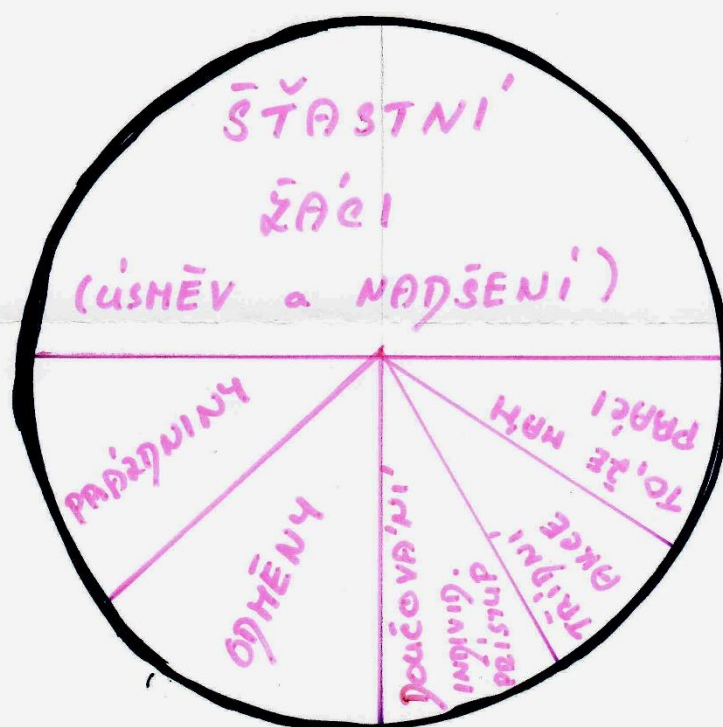 ŠŤASTNÍ
ŽÁCI
(ÚSMĚV a NADŠENÍ)
PRÁZDNINY
ODMĚNY
DOUČOVÁNÍ
INDIVID.
PŘÍSTUP
TŘÍDNÍ
AKCE
TO, ŽE MÁM
PRÁCI